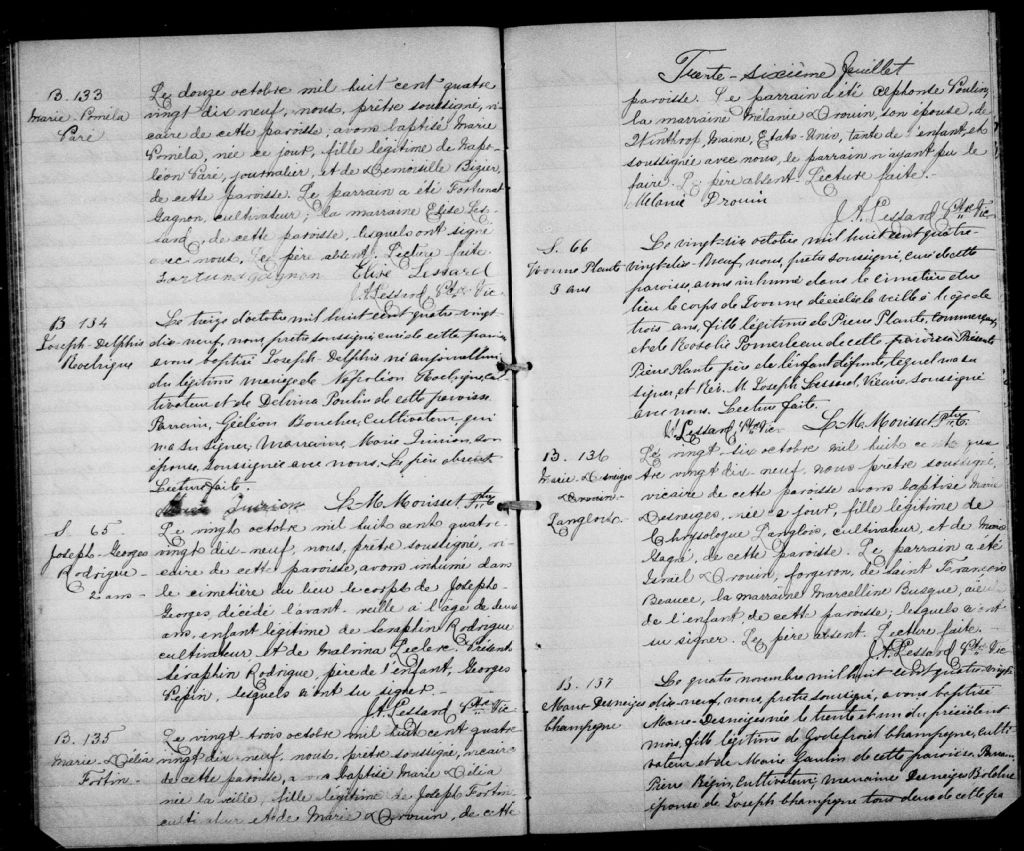 B. 133
Marie Poméla
Paré
Le douze octobre mil huit cent quatre
vingt dix neuf, nous, prêtre soussigné, vi-
caire de cette paroisse, avons baptisé Marie
Poméla, née ce jour, fille légitime de Napo-
léon Paré, journalier, et de Demoiselle Bizier,
de cette paroisse. Le parrain a été Fortunat
Gagnon, cultivateur; la marraine Elise Les-
sard, de cette paroisse, lesquels ont signé
avec nous. Le père absent. Lecture faite.
Fortunat Gagnon Elise Lessard
J.A. Lessard Ptre Vic
B. 134
Joseph-Delphis
Rodrigue
Le treize d'octobre mil huit cent quatre-vingt
dix-neuf, nous, prêtre soussigné, curé de cette parois
avons baptisé Joseph-Delphis né aujourd'hui
du légitime mariage de Napoléon Rodrigue, cul
tivateur et de Delvina Poulin de cette paroisse
Parrain, Gédéon Boucher, Cultivateur, qui
n'a su signer; Marraine, Marie Quirion, son
épouse, Soussignée avec nous. Le père absent
Lecture faite.
Marie Quirion L.M. Morisset Ptre
S. 65
Joseph-Georges
Rodrigue
2 ans
Le vingt octobre mil huit cent quatre
vingt dix-neuf, nous, prêtre soussigné, vi-
caire de cette paroisse, avons inhumé dans
le cimetière du lieu le corps de Joseph-
Georges, décédé l'avant-veille à l'âge de deux
ans, enfant légitime de Séraphin Rodrigue
cultivateur, et de Malvina Leclerc. Présents
Séraphin Rodrigue, père de l'enfant, Georges
Pépin, lesquels n'ont su signer.
J.A. Lessard Ptre Vic
B. 135
Marie-Délia
Fortin
Le vingt-trois octobre mil huit cent quatre
vingt dix-neuf, nous, prêtre soussigné, vicaire
de cette paroisse, avons baptisé Marie Délia
née la veille, fille légitime de Joseph Fortin
cultivateur et de Marie Drouin, de cette
Trente-sixième Juillet
paroisse. Le parrain a été Alphonse Poulin,
la marraine Mélanie Drouin, son épouse, de
Winthrop Maine, Etats-Unis, tante de l'enfant, et
soussignée avec nous, le parrain n'ayant pu le
faire. Le père absent. Lecture faite.
Mélanie Drouin
J.A. Lessard Ptre Vic
S. 66
Yvonne Plante
3 ans
Le vingt-six octobre mil huit cent quatre-
vingt-dix-Neuf, nous, prêtre soussigné, curé de cette
paroisse, avons inhumé dans le cimetière du
lieu le corps de Yvonne décédée la veille à l'âge de
trois ans, fille légitime de Pierre Plante, commerçant,
et de Rosalie Pomerleau de cette paroisse. Présents
Pierre Plante père de l'enfant défunte lequel n'a su
signer, et Rév. M. Joseph Lessard, Vicaire, Soussigné
avec nous. Lecture faite.
J.A. Lessard, Ptre Vic L.M. Morisset Ptre
B. 136
Marie-Desneiges
Drouin
Langlois
Le vingt-six octobre mil huit cent qua
tre vingt dix-neuf, nous, prêtre soussigné,
vicaire de cette paroisse avons baptisé Marie
Desneiges, née ce jour, fille légitime de
Chrysologue Langlois, cultivateur, et de Marie
Gagné, de cette paroisse. Le parrain a été
Israël Drouin, forgeron, de Saint François
Beauce, la marraine Marcelline Busque, aïeule
de l'enfant de cette paroisse; lesquels n'ont
su signer. Le père absent. Lecture faite.
J.A. Lessard Ptre Vic
B. 137
Marie-Desneiges
Champagne
Le quatre novembre mil huit cent quatre-vingt
dix-neuf, nous, prêtre soussigné, avons baptisé
Marie-Desneiges née le trente et un du précédent
mois, fille légitime de Godefroid Champagne, culti
vateur et de Marie Gaulin de cette paroisse. Parrain
Pierre Bégin, Cultivateur; marraine Desneiges Bolduc
épouse de Joseph Champagne tous deux de cette pa